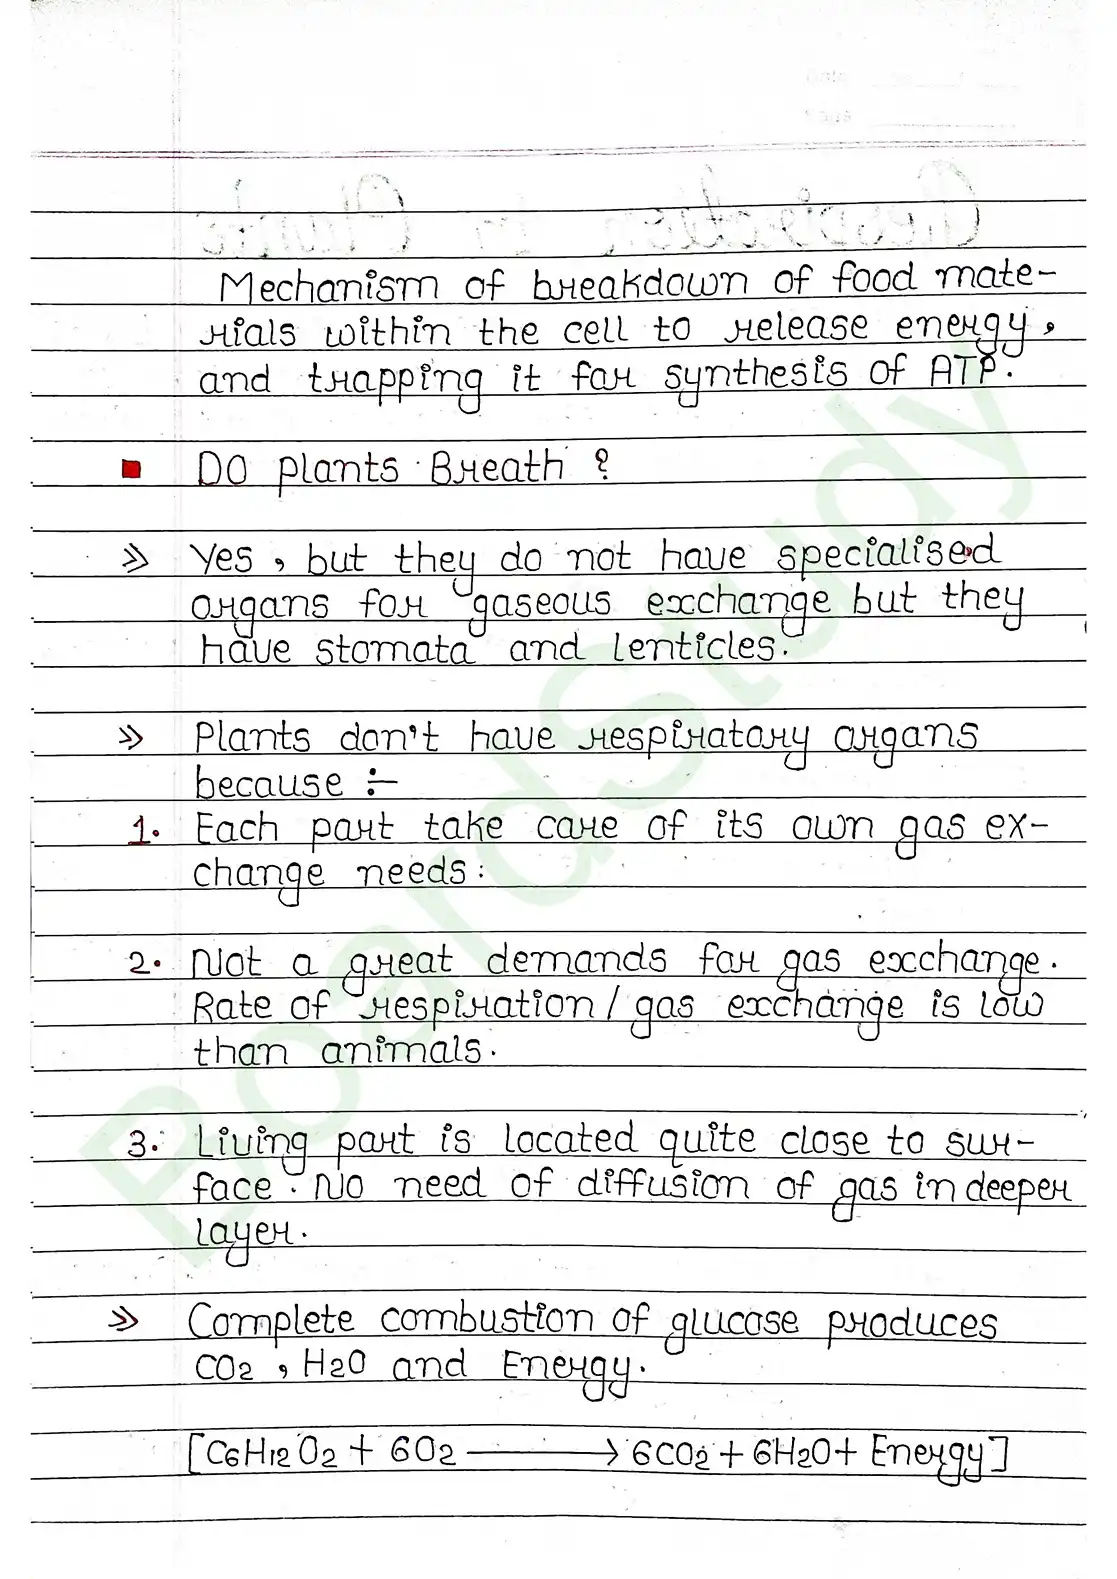 Mechanism of breakdown of food mate-
rials within the cell to release energy,
and trapping it for synthesis of ATP.
Do plants Breath ?
» Yes, but they do not have specialised
organs for gaseous exchange but they
have stomata and lenticles.
» Plants don't have respiratory organs
because :-
1. Each part take care of its own gas ex-
change needs.
2. Not a great demands for gas exchange.
Rate of respiration / gas exchange is low
than animals.
3. Living part is located quite close to sur-
face. No need of diffusion of gas in deeper
layer.
» Complete combustion of glucose produces
CO2, H2O and Energy.
[C6H12O2 + 6O2 → 6CO2 + 6H2O + Energy]
BoardStudy